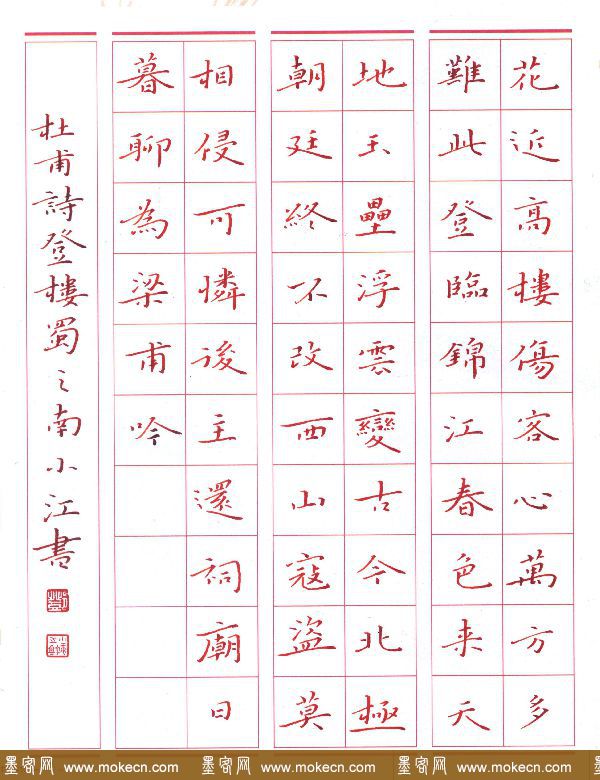 花近高樓傷客心萬方多
難此登臨錦江春色来天
地玉壘浮雲變古今北極
朝廷終不改西山寇盜莫
相侵可憐後主還祠廟日
暮聊為梁甫吟
杜甫詩登樓蜀之南小江書
墨客网 www.mokecn.com 墨客网 www.mokecn.com 墨客网 www.mokecn.com